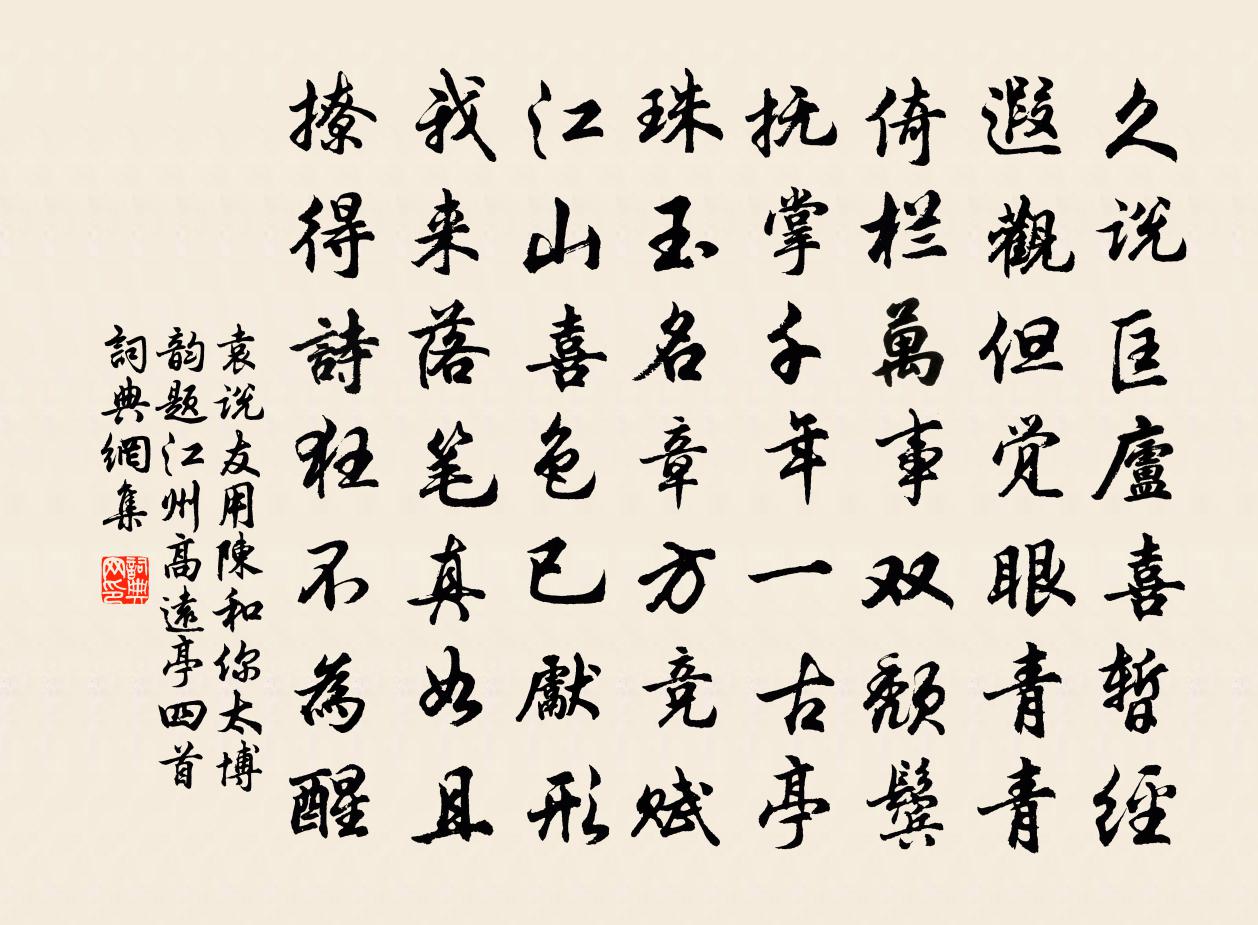 久说匡廬喜暫經
遐觀但觉眼青青
倚栏萬事双颓鬓
抚掌千年一古亭
珠玉名章方竞赋
江山喜色已獻形
我来落笔真如且
撩得詩狂不為醒
袁说友用陳和你太博
韵题江州高遠亭四首
詞典網集
詞典网印